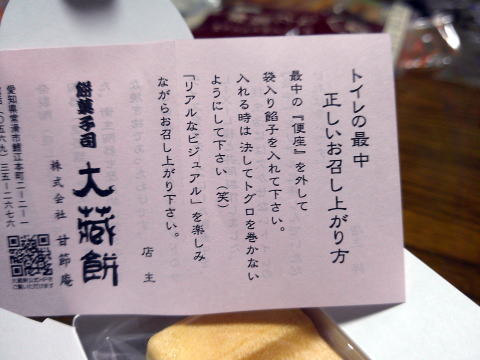 トイレの最中
正しいお召し上がり方
最中の『便座』を外して
袋入り餡子を入れて下さい。
入れる時は決してトグロを巻かない
ようにして下さい(笑)
「リアルなビジュアル」を楽しみ
ながらお召し上がり下さい。
店主
餅菓子司 大蔵餅
株式会社 甘節庵
愛知県常滑市鯉江本町二-二-一